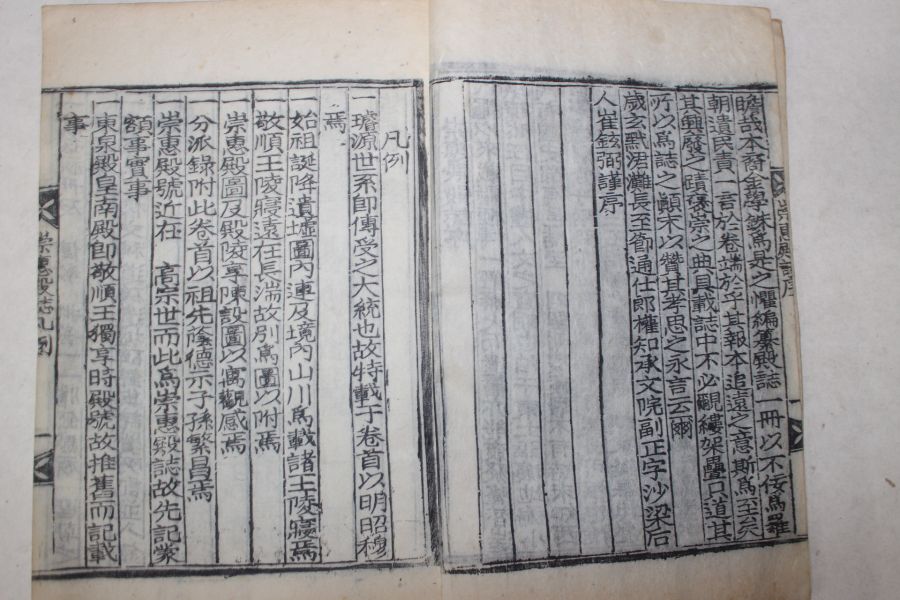 哉本裔金學銖爲是之懼編纂殿誌一冊以不佞爲羅
朝遺民責一言於卷端於乎其報本追遠之意斯爲至矣
其興發之蹟褒崇之典具載誌中不必覼縷架疊只道其
所以爲誌之顚末以贊其孝思之永言云爾
歲玄黓涒灘長至節通仕郎權知承文院副正字沙梁后
人崔鉉弼謹序
凡例
一璿源世系卽傳受之大統也故特載于卷首以明昭穆
焉
始祖誕降遺墟圖內連及境內山川爲載諸王陵寢焉
敬順王陵寢遠在長湍故別爲圖以附焉
一崇惠殿圖及殿陵享陳設圖以寓觀感焉
一分派錄附此卷首以祖先蔭德示子孫繁昌焉
一崇惠殿號近在 高宗世而此爲崇惠殿誌故先記蒙
額事實事
一東泉殿皇南殿卽敬順王獨享時殿號故推舊而記載
事
崇惠殿誌凡例 一